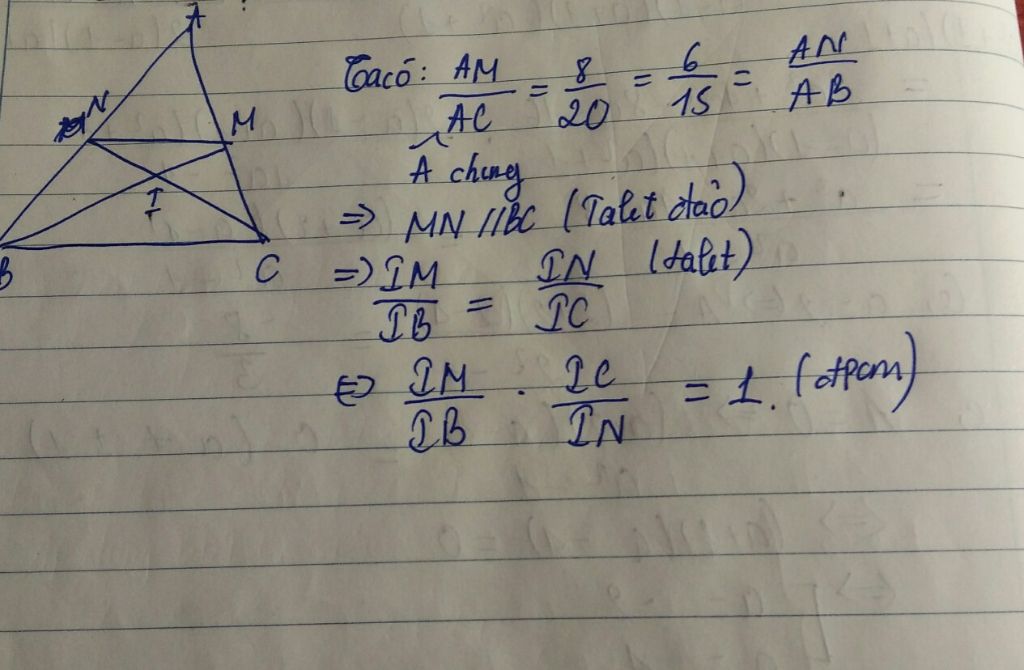 A
N
M
I
B
C
Ta có: AM/AC = 8/20 = 6/15 = AN/AB
A chung
=> MN // BC (Talet đảo)
=> IM/IB = IN/IC (talet)
<=> IM/IB . IC/IN = 1. (đpcm)